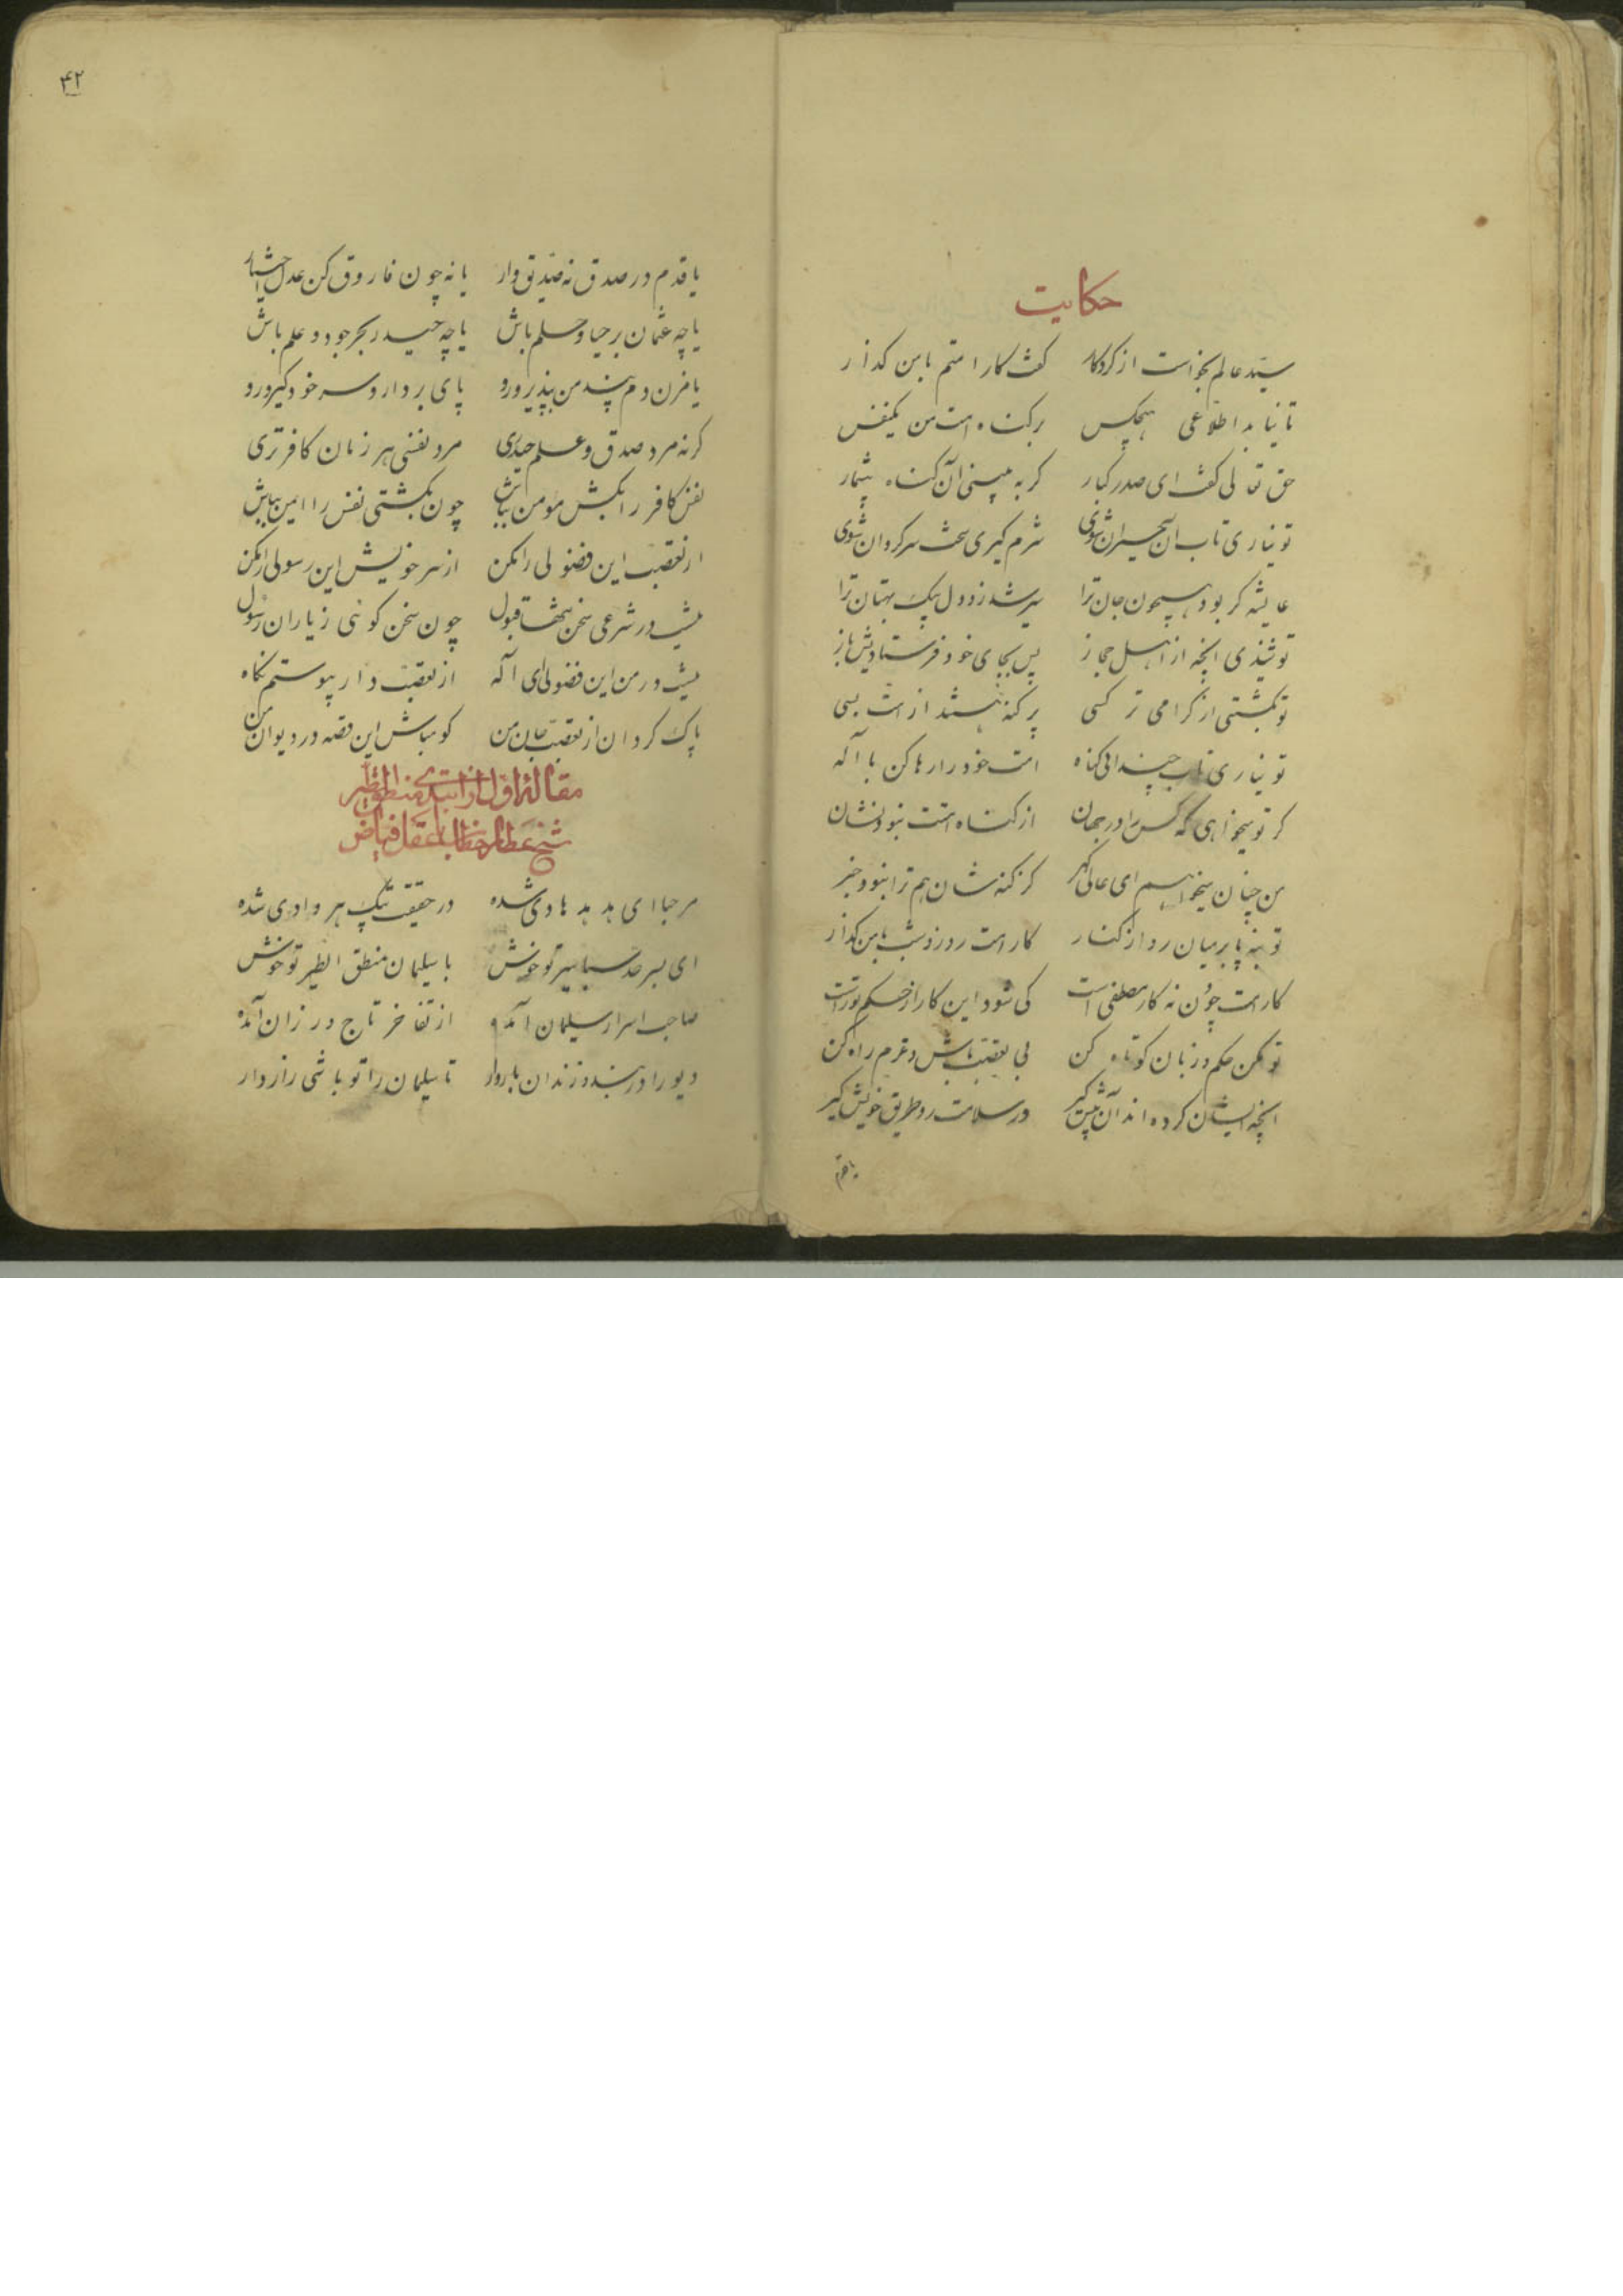 حکایت
سید عالم بخواست از کردکار کفت کار امتم با من کذار
تا نیابد اطلاعی هیچکس بر کناه امت من یکنفس
حق تعالی کفت ای صدر کبار کر به بینی آن کناه بیشمار
تو نیاری تاب آن حیران شوی شرم کیری سخت سرکردان شوی
عایشه کر بود همچون جان ترا سیر شد زو دل بیک بهتان ترا
تو شنیدی آنچه از اهل مجاز پس بجای خود فرستادیش باز
تو بکشتی از کرامی تر کسی پر کنه هستند از امت بسی
تو نیاری تاب چندانی کناه امت خود را رها کن با اله
کر تو میخواهی که کس را در جهان از کناه امتت نبود نشان
من چنان میخواهم ای عالی کهر کز کنه شان هم ترا نبود خبر
تو بنه پا بر میان رو از کنار کار امت روز و شب با من کذار
کار امت چون نه کار مصطفی است کی شود این کار از حکم تو راست
تو مکن حکم و زبان کوتاه کن بی تعصب باش و عزم راه کن
آنچه ایشان کرده اند آن پیش کیر در سلامت رو طریق خویش کیر
یا قدم
۴۲
یا قدم در صدق نه صدیق وار یا نه چون فاروق کن عدل اختیار
یا چه عثمان بر حیا و حلم باش یا چه حیدر بحر جود و علم باش
یا مزن دم پند من بپذیر و رو پای بردار و سر خود کیر و رو
کر نه مرد صدق و علم حیدری مرد نفسی هر زمان کافر تری
نفس کافر را بکش مومن بباش چون بکشتی نفس را ایمن بباش
از تعصب این فضولی را مکن از سر خویش این رسولی را مکن
نیست در شرعی سخن تنها قبول چون سخن کوئی ز یاران رسول
نیست در من این فضولی ای اله از تعصب دار پیوستم نکاه
پاک کردان از تعصب جان من کو مباش این قصه در دیوان من
مقالهٔ اول از ابتدای منطق الطیر
شیخ عطار خطاب با عقل فیاض
مرحبا ای هدهد هادی شده در حقیقت پیک هر وادی شده
ای بسرحد سبا سیر تو خوش با سلیمان منطق الطیر تو خوش
صاحب اسرار سلیمان آمده از تفاخر تاج ور زان آمده
دیو را در بند و زندان باز دار تا سلیمان را تو باشی راز دار